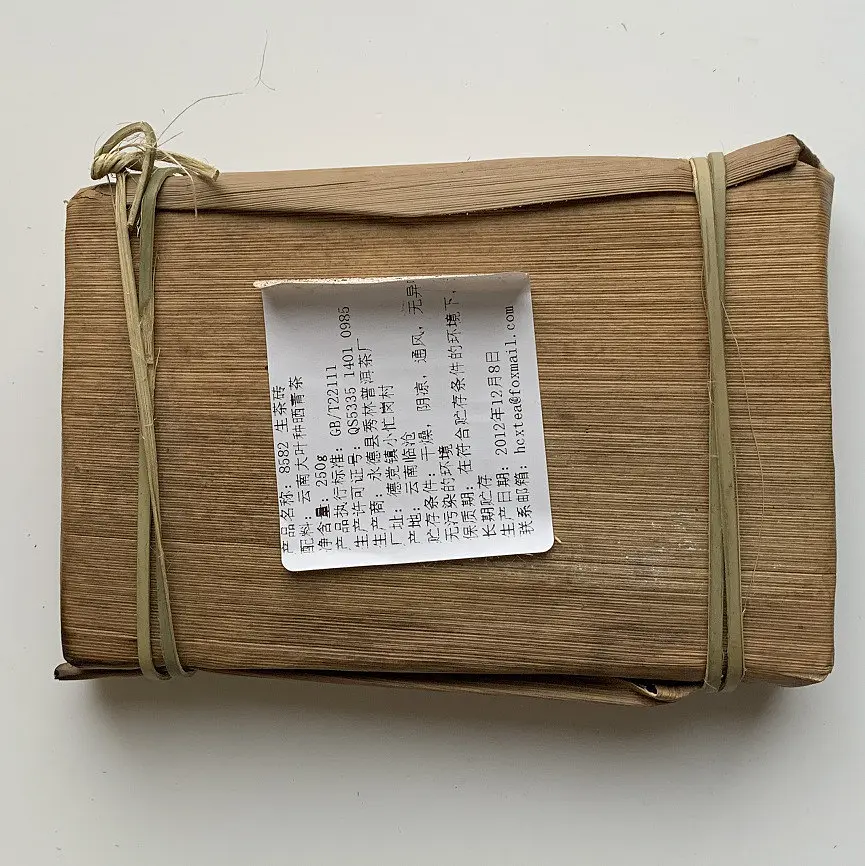 产品名称: 8582 生茶砖
配料: 云南大叶种晒青茶
净含量: 250g
产品执行标准: GB/T22111
生产许可证号: QS5335 1401 0985
生产商: 永德县秀林普洱茶厂
厂址: 德党镇小忙岗村
产地: 云南临沧
贮存条件: 干燥, 阴凉, 通风, 无异
无污染的环境
保质期: 在符合贮存条件的环境下,
长期贮存
生产日期: 2012年12月8日
联系邮箱: hcxtea@foxmail.com